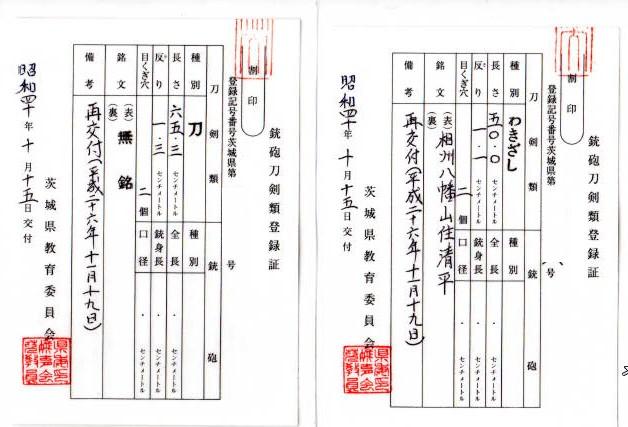 銃砲刀剣類登録証
割印
登録記号番号茨城県第 号
刀剣類 銃砲
種別 わきざし 種別
長さ 五〇・〇 センチメートル 全長 ・ センチメートル
反り 一・一 センチメートル 銃身長 ・ センチメートル
目くぎ穴 二個 口径 ・ センチメートル
銘文 (表) 相州八幡山住清平
(裏)
備考 再交付(平成二十六年十一月十九日)
昭和四十年十月十五日交付
茨城県教育委員会
銃砲刀剣類登録証
割印
登録記号番号茨城県第 号
刀剣類 銃砲
種別 刀 種別
長さ 六五・三 センチメートル 全長 ・ センチメートル
反り 一・三 センチメートル 銃身長 ・ センチメートル
目くぎ穴 二個 口径 ・ センチメートル
銘文 (表) 無銘
(裏)
備考 再交付(平成二十六年十一月十九日)
昭和四十年十月十五日交付
茨城県教育委員会